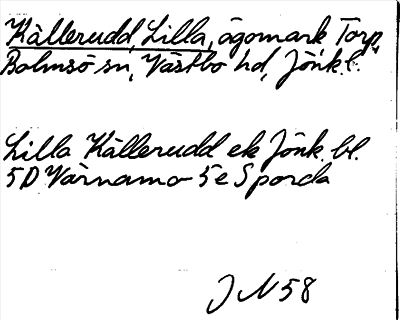 Källerudd, Lilla, ägomark Torp,
Bolmsö sn, Västbo hd, Jönk. l.
Lilla Källerudd ek Jönk. bl.
5D Värnamo 5e Sporda
J N 58